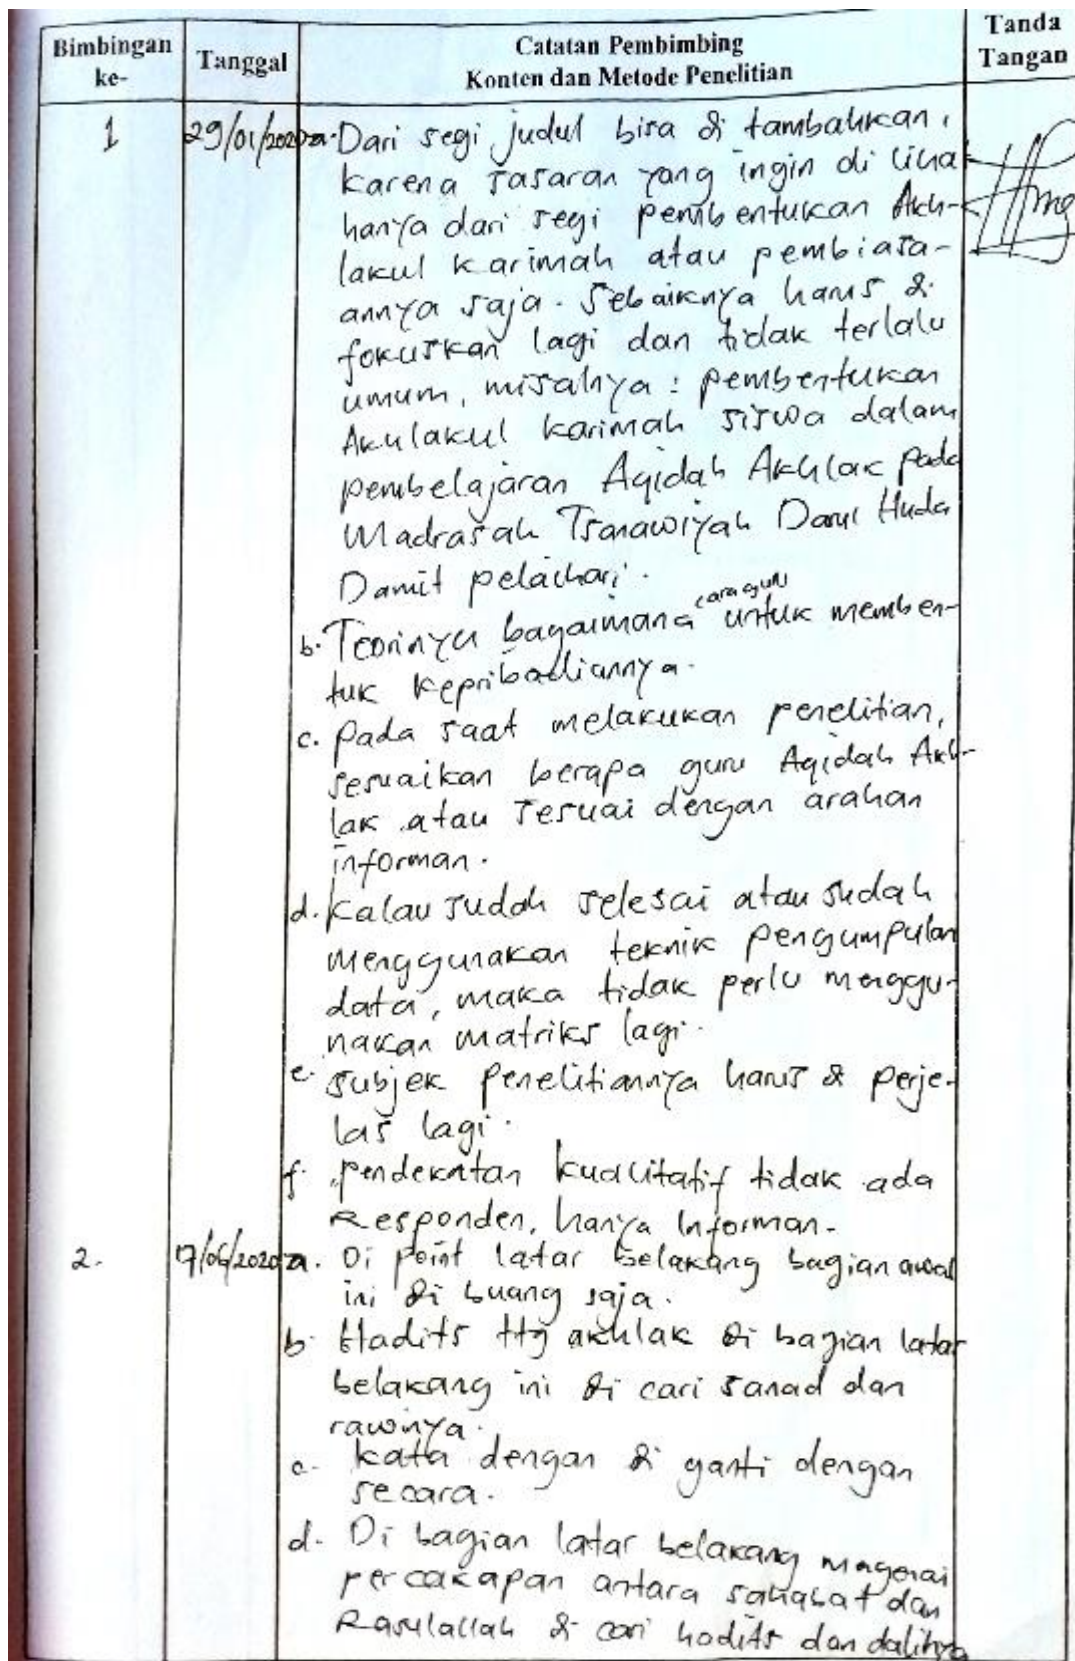 Bimbingan ke-
Tanggal
Catatan Pembimbing
Konten dan Metode Penelitian
Tanda Tangan
1 29/01/2020 a. Dari segi judul bisa di tambahkan,
karena sasaran yang ingin di liha
hanya dari segi pembentukan Akh-
lakul karimah atau pembiasa-
annya saja. Sebaiknya harus di
fokuskan lagi dan tidak terlalu
umum, misalnya : pembentukan
Akhlakul karimah siswa dalam
pembelajaran Aqidah Akhlak pada
Madrasah Tsanawiyah Darul Huda
Damit pelaihari.
b. Teorinya bagaimana cara guru untuk memben-
tuk kepribadiannya.
c. pada saat melakukan penelitian,
sesuaikan berapa guru Aqidah Akh-
lak atau sesuai dengan arahan
informan.
d. Kalau sudah selesai atau sudah
menggunakan teknik pengumpulan
data, maka tidak perlu menggu-
nakan matriks lagi.
e. subjek penelitiannya harus di perje-
las lagi.
f. pendekatan kualitatif tidak ada
Responden, hanya Informan.
2. 17/06/2020 a. Di point latar belakang bagian awal
ini di buang saja.
b. Hadits ttg akhlak di bagian latar
belakang ini di cari sanad dan
rawinya.
c. kata dengan di ganti dengan
secara.
d. Di bagian latar belakang mngenai
percakapan antara sahabat dan
Rasulallah di cari hadits dan dalilnya